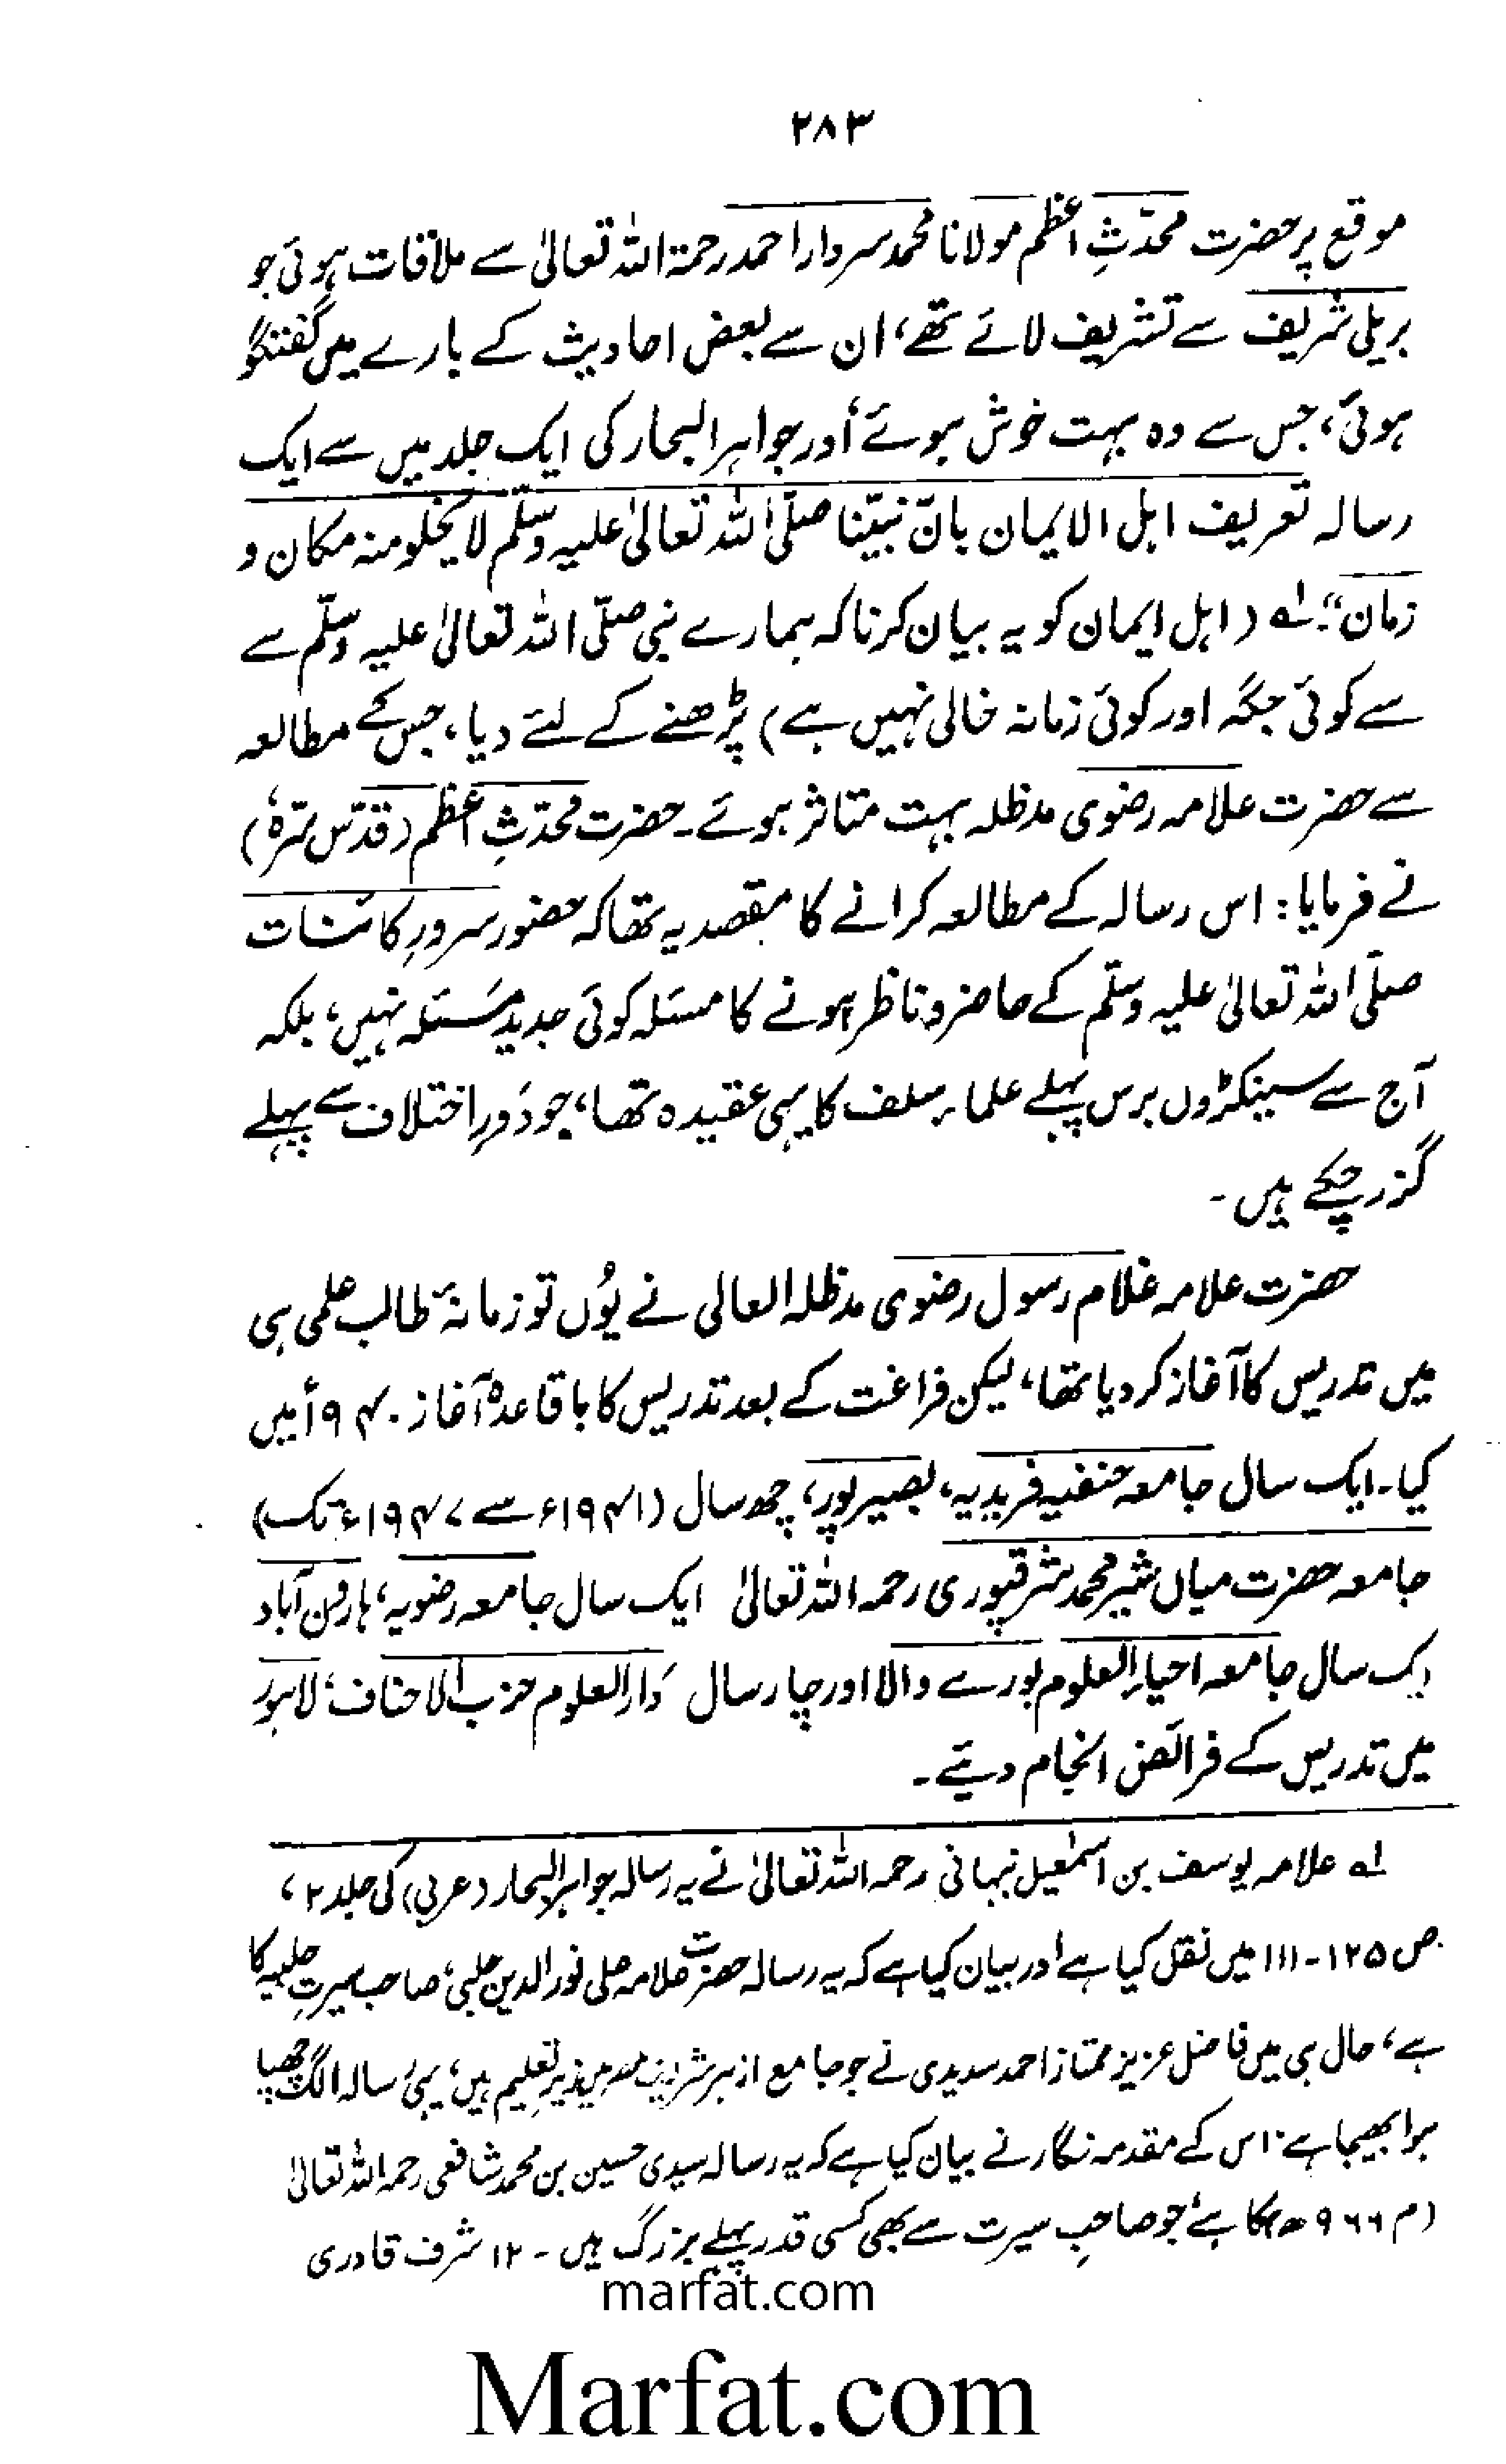 ۲۸۳
موقع پر حضرت محدّثِ اعظم مولانا محمد سردار احمد رحمۃ اللہ تعالیٰ سے ملاقات ہوئی جو
بریلی شریف سے تشریف لائے تھے، ان سے بعض احادیث کے بارے میں گفتگو
ہوئی، جس سے وہ بہت خوش ہوئے اور جواہر البحار کی ایک جلد میں سے ایک
رسالہ تعریف اہل الایمان بانّ نبیّنا صلّی اللہ تعالیٰ علیہ وسلّم لا یخلو منہ مکان و
زمان"؂۱ (اہل ایمان کو یہ بیان کرنا کہ ہمارے نبی صلّی اللہ تعالیٰ علیہ وسلّم سے
سے کوئی جگہ اور کوئی زمانہ خالی نہیں ہے) پڑھنے کے لئے دیا، جس کے مطالعہ
سے حضرت علامہ رضوی مدظلہ بہت متاثر ہوئے۔ حضرت محدّثِ اعظم (قدّس سرّہٗ)
نے فرمایا: اس رسالہ کے مطالعہ کرانے کا مقصد یہ تھا کہ حضور سرورِ کائنات
صلّی اللہ تعالیٰ علیہ وسلّم کے حاضر و ناظر ہونے کا مسئلہ کوئی جدید مسئلہ نہیں، بلکہ
آج سے سینکڑوں برس پہلے علماء سلف کا یہی عقیدہ تھا، جو دَورِ اختلاف سے پہلے
گزر چکے ہیں۔
حضرت علامہ غلام رسول رضوی مدظلہ العالی نے یُوں تو زمانۂ طالب علمی ہی
میں تدریس کا آغاز کر دیا تھا، لیکن فراغت کے بعد تدریس کا باقاعدہ آغاز ۱۹۴۰ء میں
کیا۔ ایک سال جامعہ حنفیہ فریدیہ، بصیر پور، چھ سال (۱۹۴۱ء سے ۱۹۴۷ء تک)
جامعہ حضرت میاں شیر محمد شرقپوری رحمہ اللہ تعالیٰ ایک سال جامعہ رضویہ، ہارون آباد
یک سال جامعہ احیاء العلوم بورے والا اور چار سال دَارالعلوم حزب الاحناف، لاہور
میں تدریس کے فرائض انجام دیئے۔
؂۱ علامہ یوسف بن اسمٰعیل نبہانی رحمہ اللہ تعالیٰ نے یہ رسالہ جواہر البحار (عربی) کی جلد ۲،
ص ۱۲۵ - ۱۱۱ میں نقل کیا ہے اور بیان کیا ہے کہ یہ رسالہ حضرت علامہ علی نور الدین حلبی، صاحب سیرتِ حلبیہ کا
ہے، حال ہی میں فاضل عزیز ممتاز احمد سدیدی نے جو جامع ازہر شریف مصر میں زیر تعلیم ہیں، یہی رسالہ الگ چھپا
ہوا بھیجا ہے۔ اس کے مقدمہ نگار نے بیان کیا ہے کہ یہ رسالہ سیدی حسین بن محمد شافعی رحمہ اللہ تعالیٰ
(م ۹۶۶ھ) کا ہے، جو صاحبِ سیرت سے بھی کسی قدر پہلے بزرگ ہیں۔ ۱۲ شرف قادری
marfat.com
Marfat.com